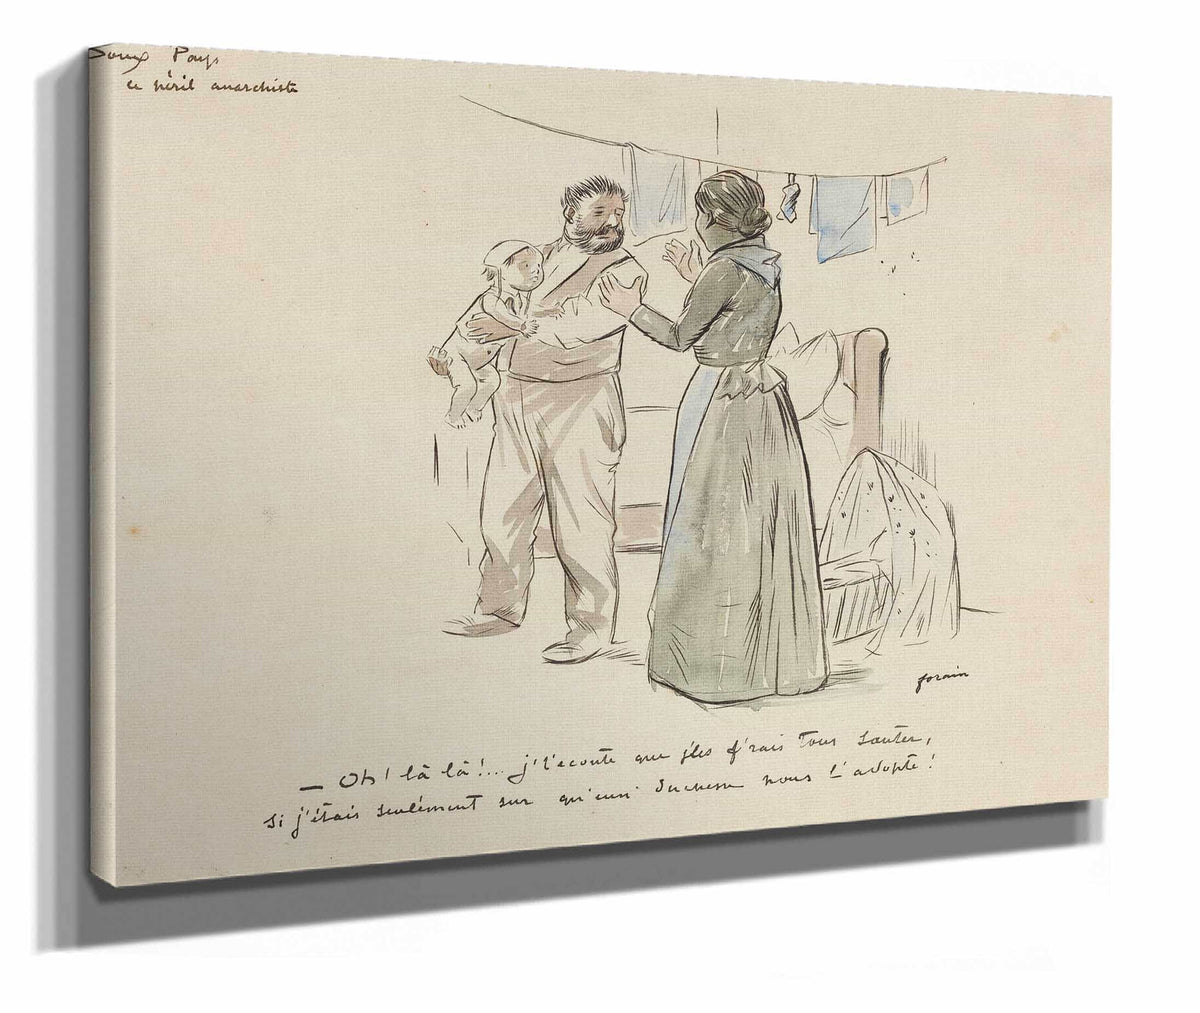 Doux Pays
Le péril anarchiste
forain
— Oh! là là!... j't'écoute que j'les f'rais tous sauter,
si j'étais seulement sur qu'une duchesse nous l'adopte!